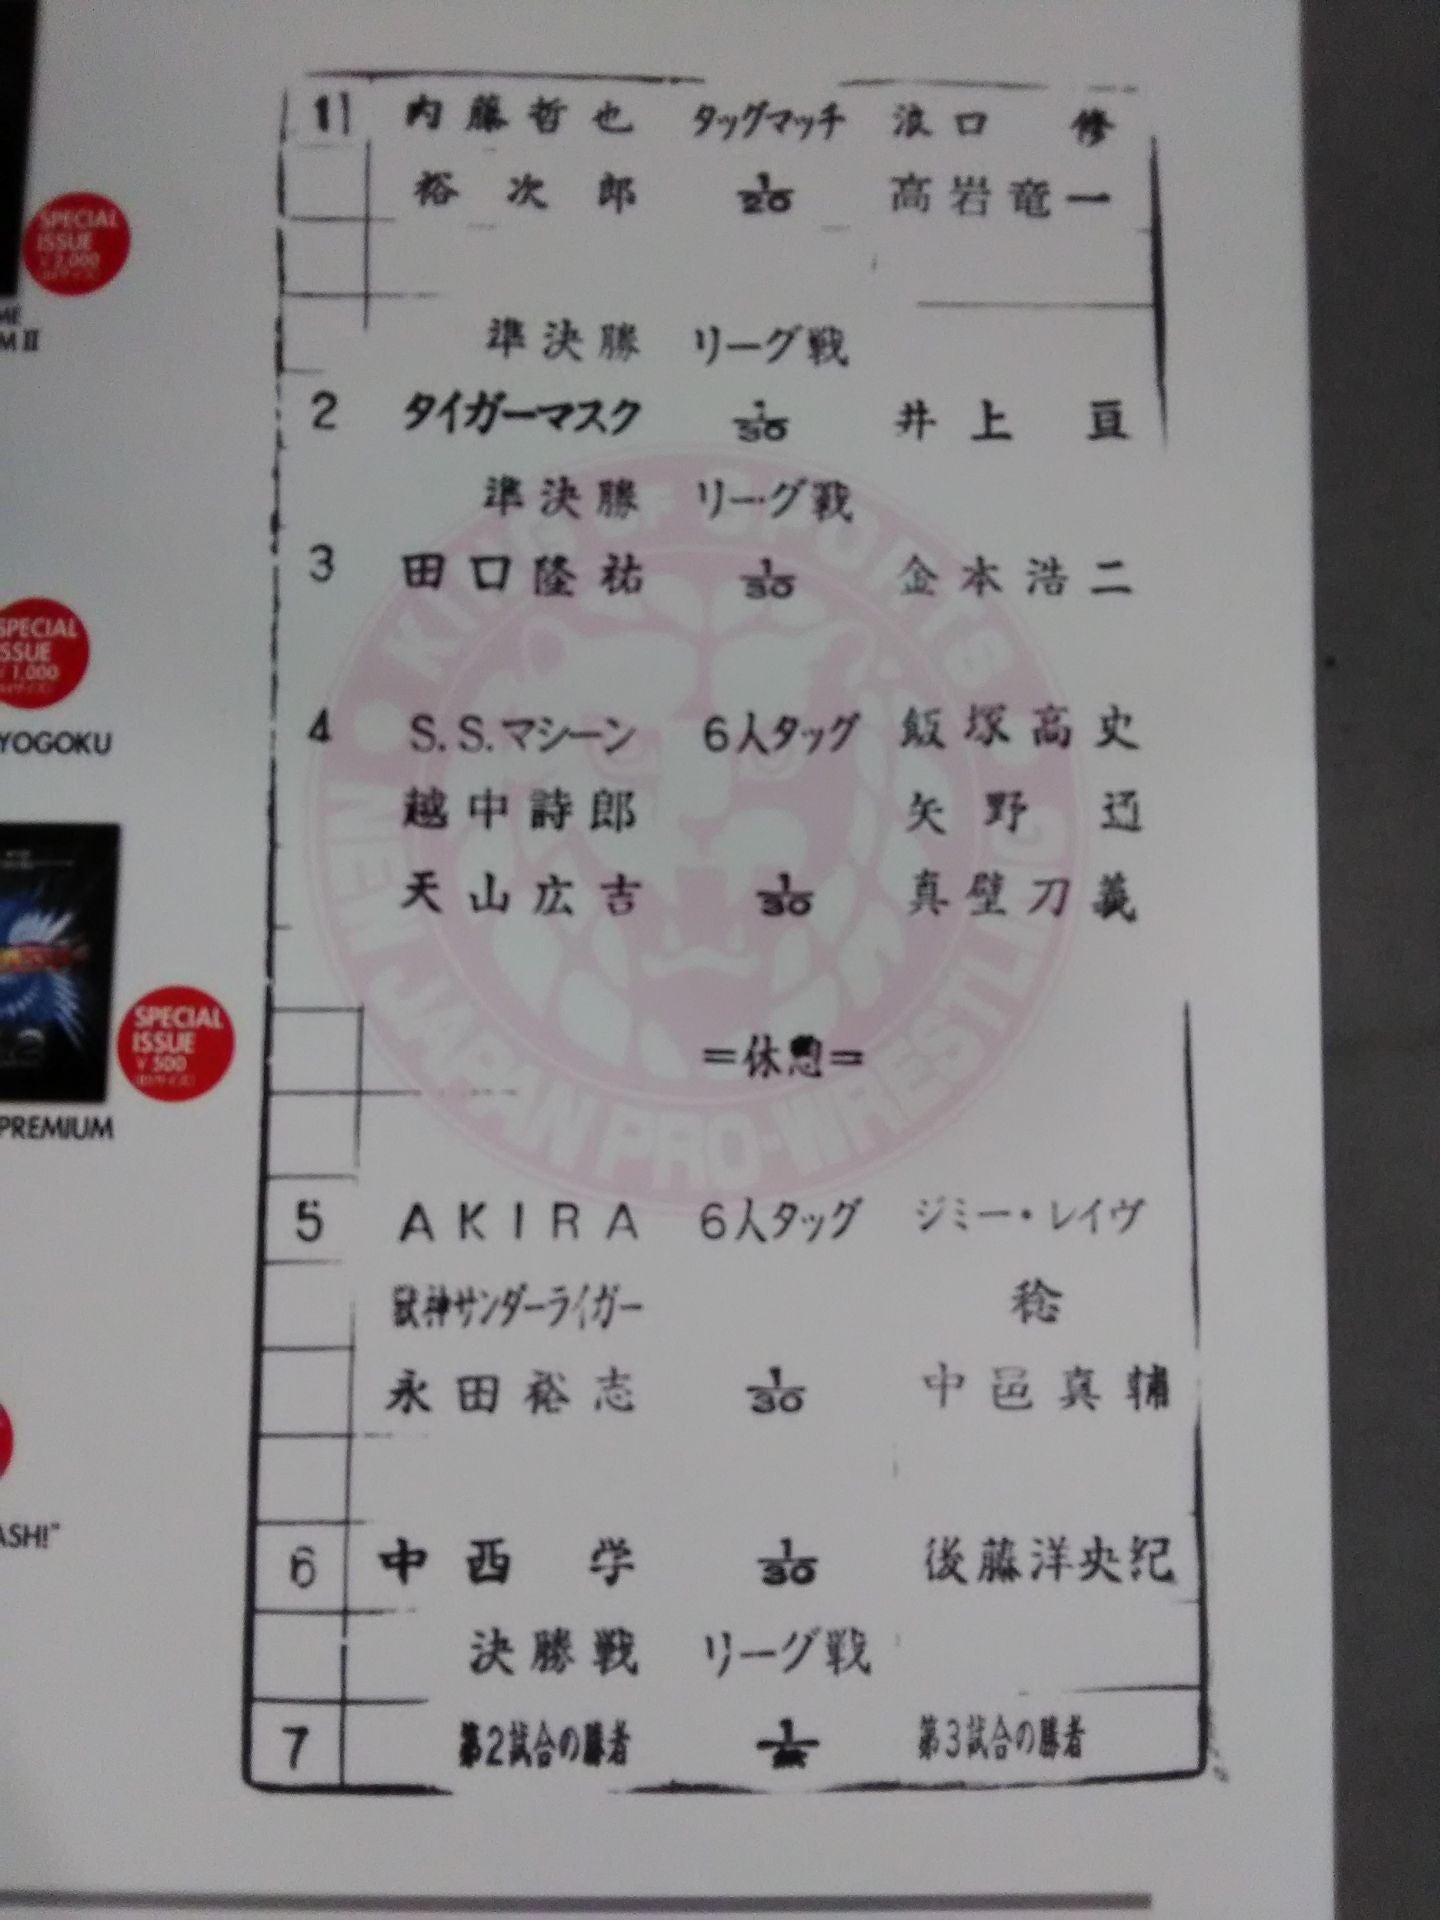 SPECIAL
ISSUE
¥2,000
ME
M II
SPECIAL
ISSUE
¥1,000
YOGOKU
SPECIAL
ISSUE
¥500
PREMIUM
ASH!"
1 内藤哲也 タッグマッチ 浪口 修
裕次郎 1/20 高岩竜一
準決勝 リーグ戦
2 タイガーマスク 1/30 井上 亘
準決勝 リーグ戦
3 田口隆祐 1/30 金本浩二
4 S.S.マシーン 6人タッグ 飯塚高史
越中詩郎 矢野 通
天山広吉 1/30 真壁刀義
=休憩=
5 AKIRA 6人タッグ ジミー・レイヴ
獣神サンダーライガー 稔
永田裕志 1/30 中邑真輔
6 中西 学 1/30 後藤洋央紀
決勝戦 リーグ戦
7 第2試合の勝者 第3試合の勝者
KING OF SPORTS
NEW JAPAN PRO-WRESTLING